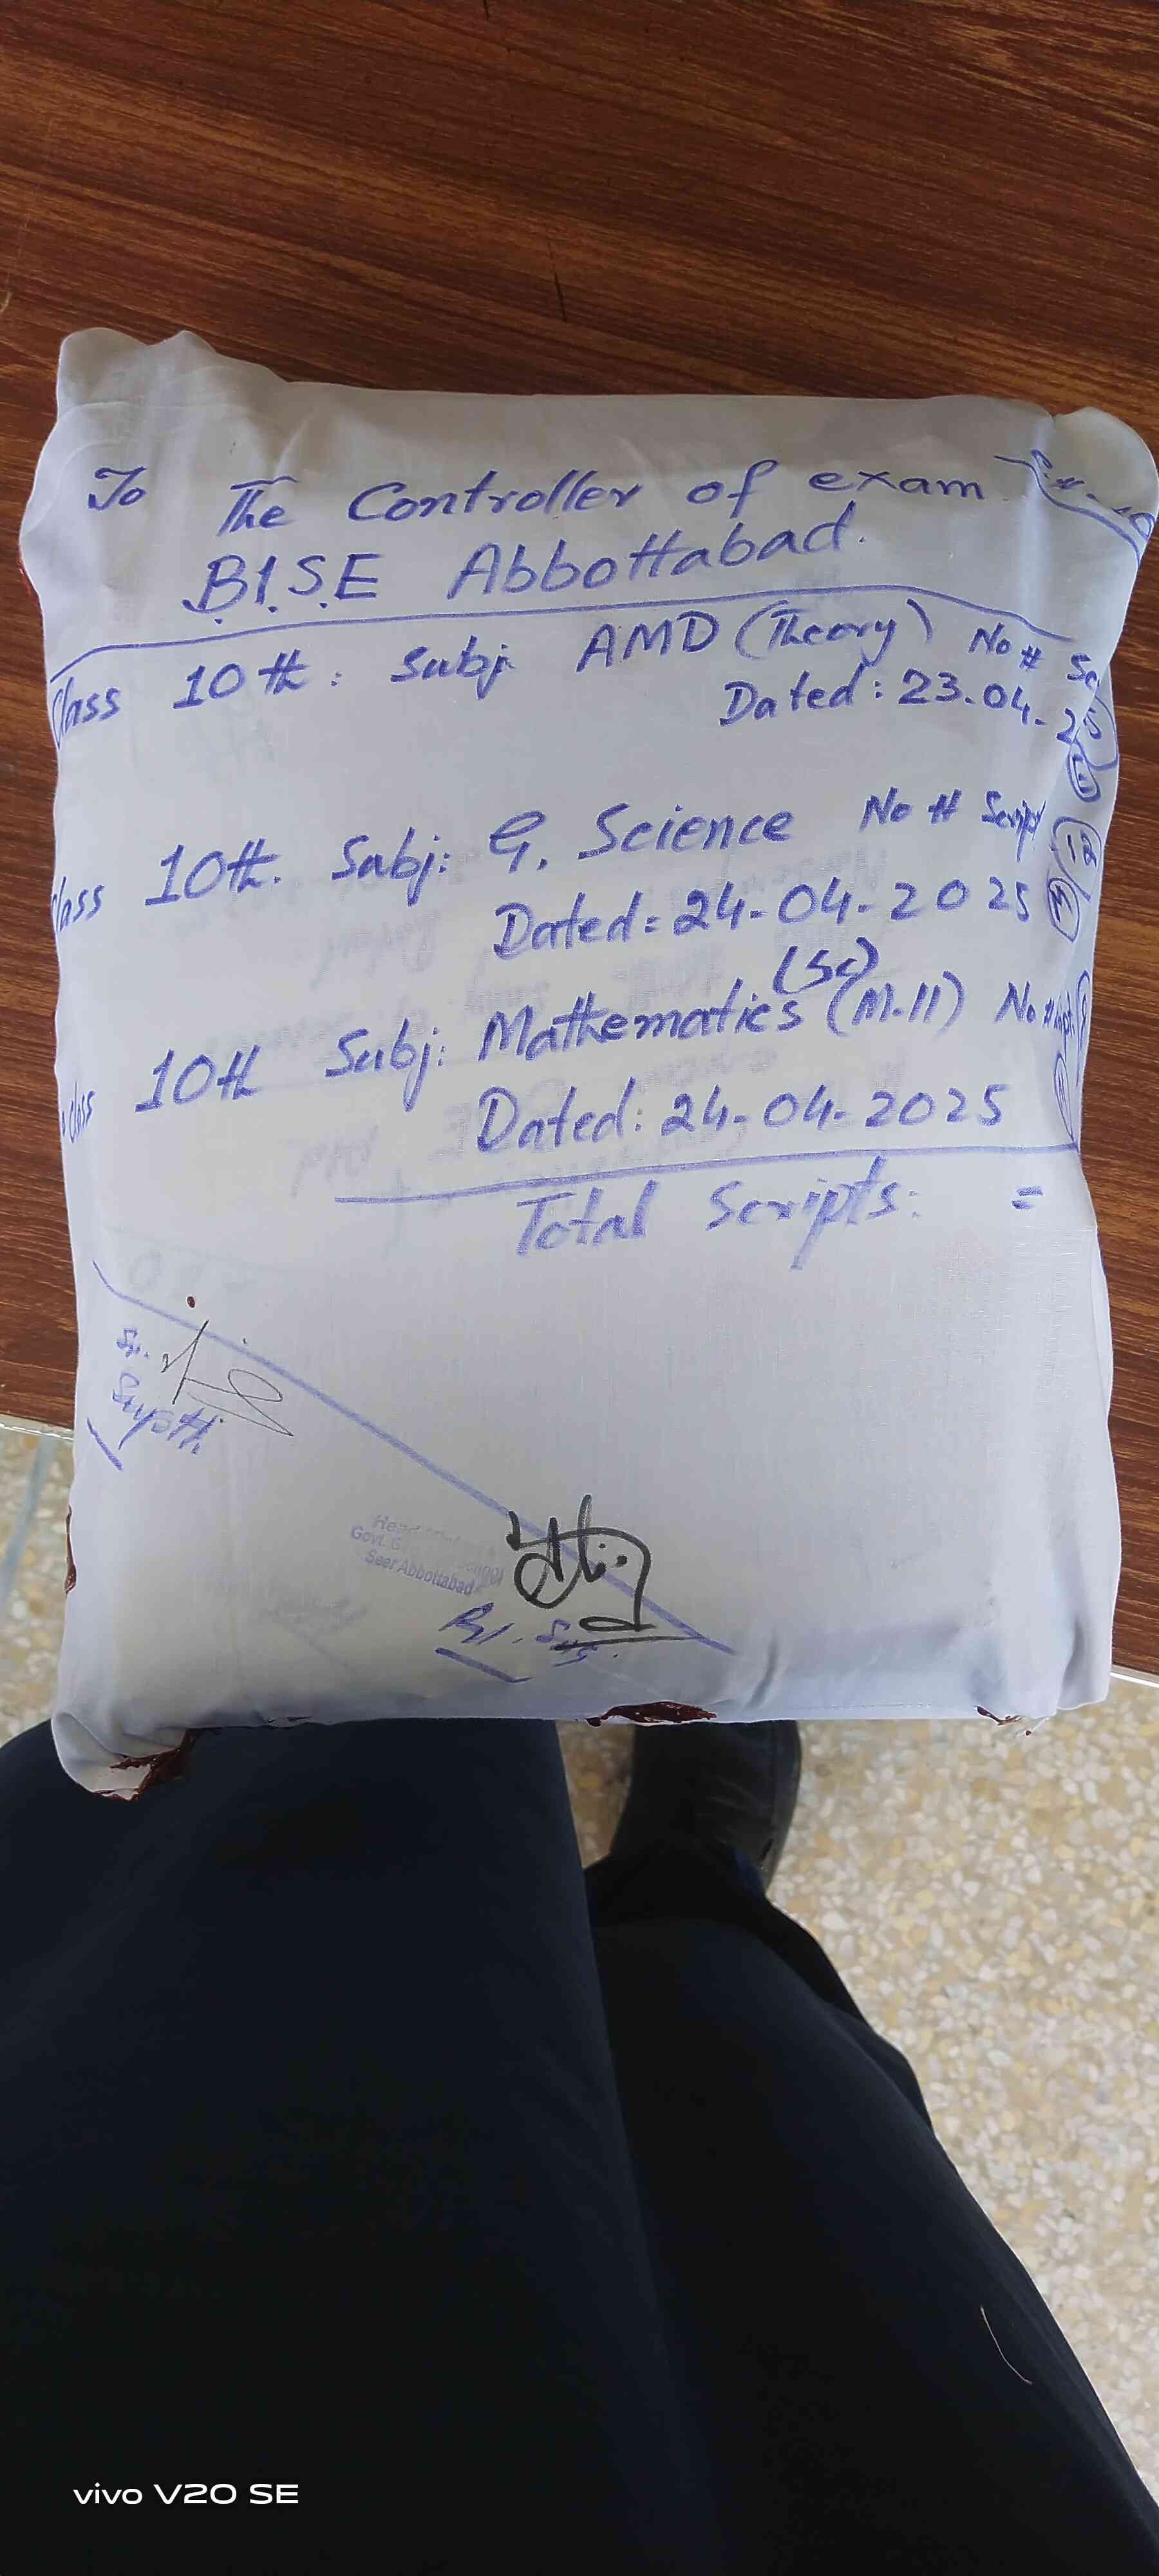 To The Controller of exam
B.I.S.E Abbottabad.
Class 10th: Subj: AMD (Theory) No #
Dated: 23.04.25
Class 10th. Subj: G. Science No # Script
12
Dated= 24-04-2025
(Sc)
Class 10th Subj: Mathematics (M.11) No #
Dated: 24-04-2025
Total Scripts: =
Supdtt.
Head
Govt. G
Seer Abbottabad
vivo V20 SE